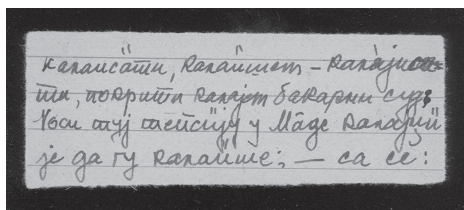 каланса̏ти, кала̏ишем – кала̀јиса-
ти, покрити кала̀јем бакарни суд;
Носи ту̑ј тепси̏ју у Ма̑де кала̀јџи̏
је да гу кала̏ише; — са се: